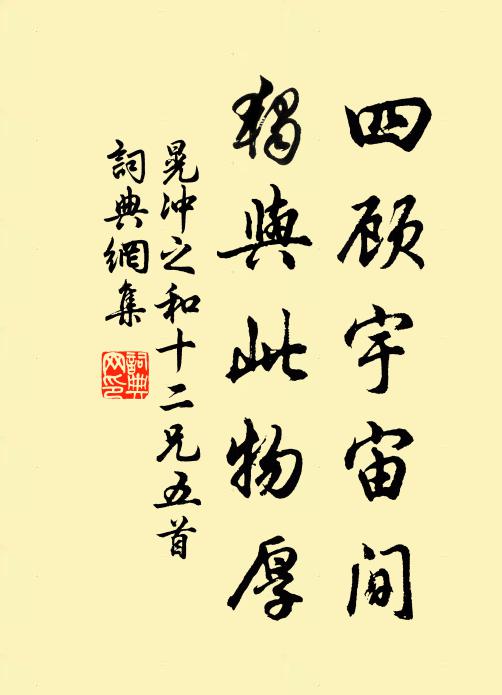 四顾宇宙间
独與此物厚
晃冲之和十二兄五首
詞典網集
詞典
网印